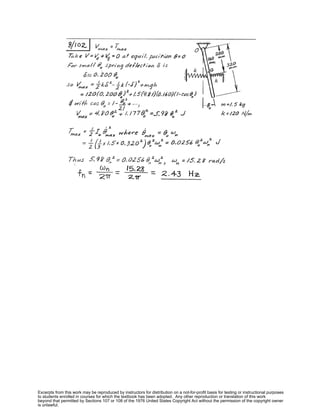 8/102 V_max = T_max
Take V = V_e + V_g = 0 at equil. position θ = 0
For small θ, spring deflection δ is
δ ≈ 0.200 θ_o
so V_max = ½kδ² - ½k(-δ)² + mgh
= 120(0.200 θ_o)² + 1.5(9.81)(0.160)(1-cos θ_o)
& with cos θ_o = 1 - θ_o²/2! + ...,
V_max = 4.80 θ_o² + 1.177 θ_o² = 5.98 θ_o² J
O
k
k
θ_o
m = 1.5 kg
k = 120 N/m
T_max = ½ I_o θ̇²_max where θ̇_max = θ_o ω_n
= ½ (⅓ × 1.5 × 0.320²) θ_o² ω_n² = 0.0256 θ_o² ω_n² J
Thus 5.98 θ_o² = 0.0256 θ_o² ω_n², ω_n = 15.28 rad/s
f_n = ω_n/2π = 15.28/2π = 2.43 Hz
Excerpts from this work may be reproduced by instructors for distribution on a not-for-profit basis for testing or instructional purposes
to students enrolled in courses for which the textbook has been adopted. Any other reproduction or translation of this work
beyond that permitted by Sections 107 or 108 of the 1976 United States Copyright Act without the permission of the copyright owner
is unlawful.